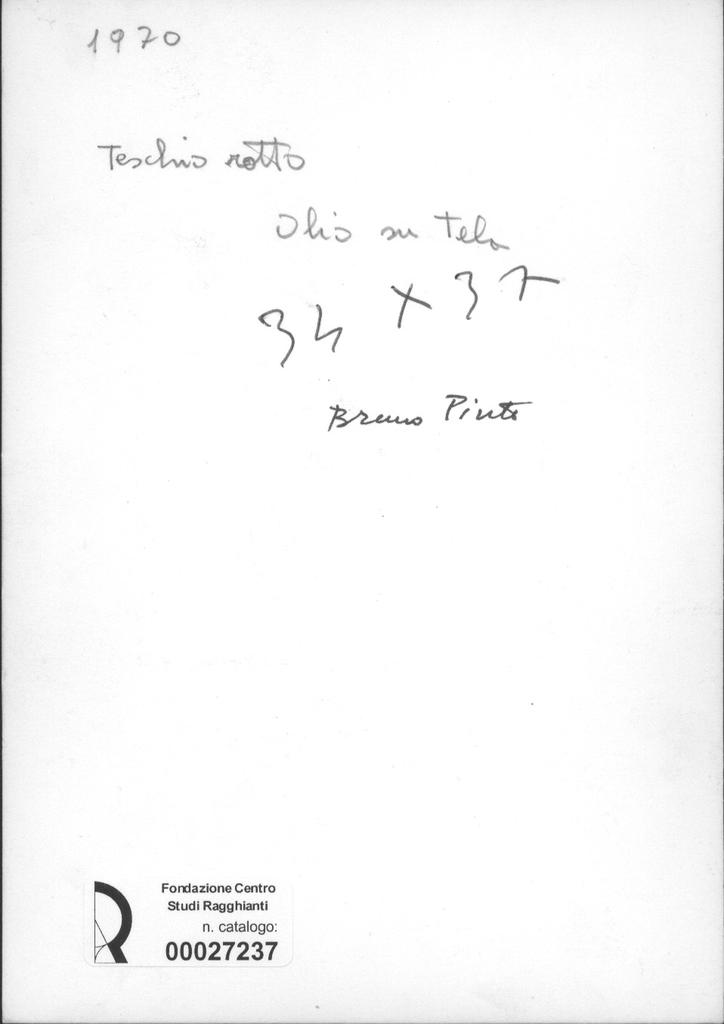 1970
Teschio rotto
Olio su tela
34 x 37
Bruno Pinto
Fondazione Centro
Studi Ragghianti
n. catalogo:
00027237